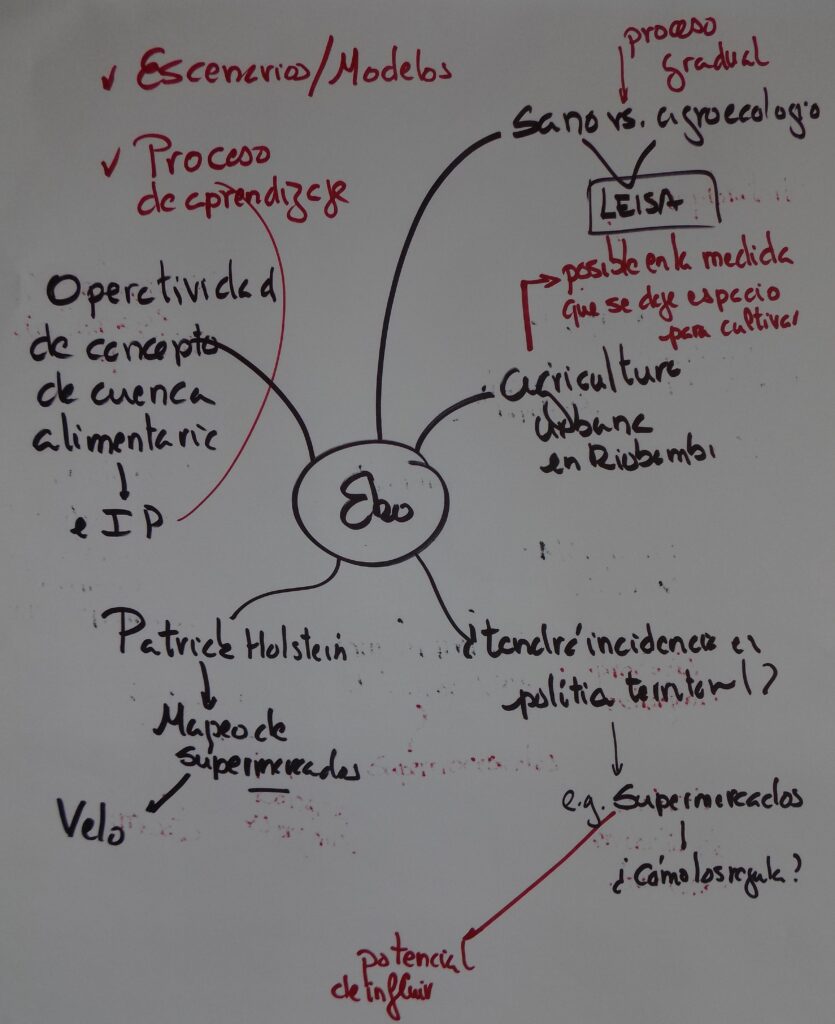 ✓ Escenarios/Modelos
✓ Proceso
de aprendizaje
proceso
gradual
Sano vs. agroecologio
LEISA
posible en la medida
que se deje espacio
para cultivar
agriculture
urbana
en Riobamb
Operatividad
de concepto
de cuenca
alimentaria
e IP
Patrick Holstein
Mapeo de
supermercados
Velo
¿tendré incidencia e
polítia territorial?
e.g. Supermercados
¿Cómo los regula?
potencial
de influir